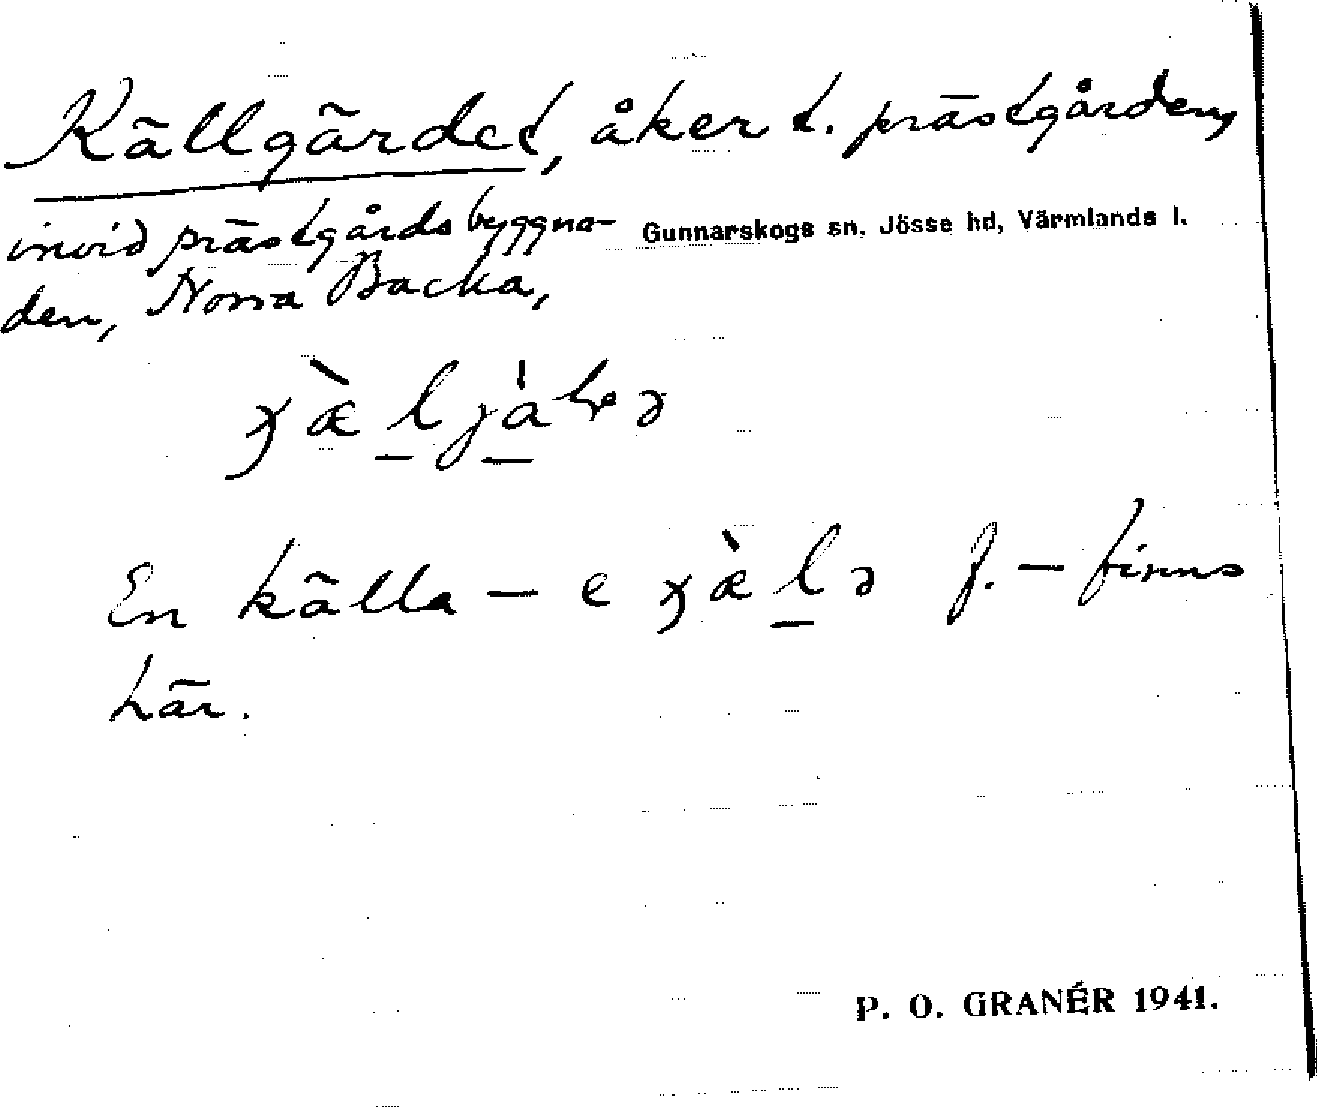 Källgärdet, åker t. prästgården,
invid prästgårdsbyggna-
den, Norra Backa,
Gunnarskogs sn. Jösse hd, Värmlands l.
En källa – e f. – finns
här.
P. O. GRANÉR 1941.